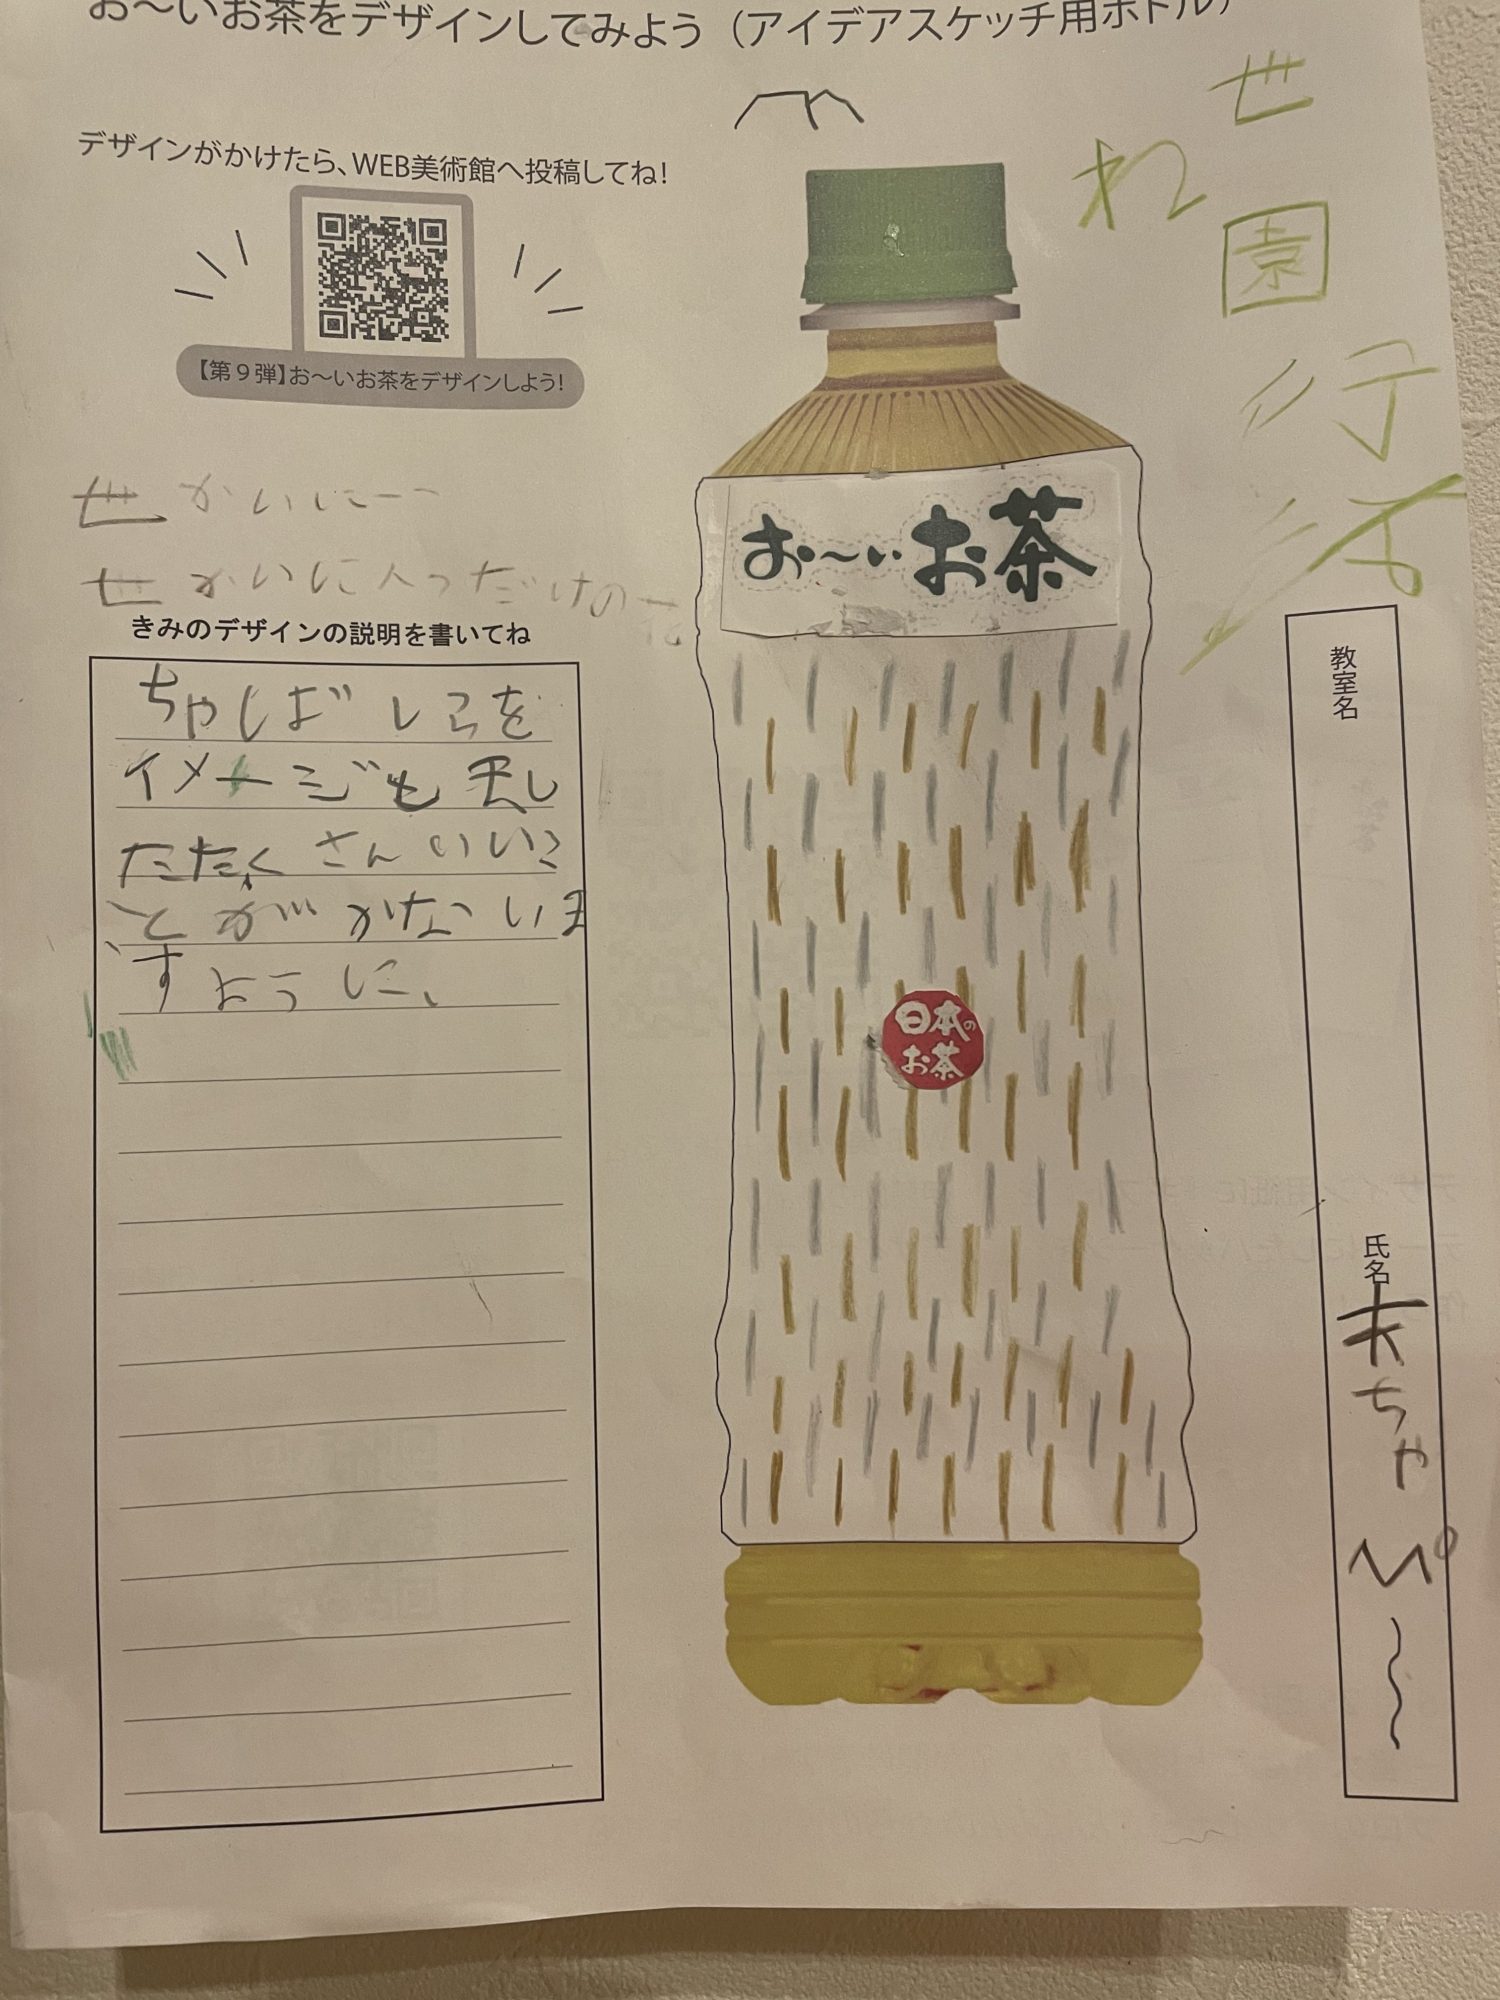 お〜いお茶をデザインしてみよう（アイデアスケッチ用ボトル）
デザインがかけたら、WEB美術館へ投稿してね!
【第９弾】お〜いお茶をデザインしよう!
世かいに一つ
世かいに人つだけの花
きみのデザインの説明を書いてね
ちゃばしらを
イメージも天し
たたくさんいいこ
とがかないま
すように、
お〜いお茶
日本の
お茶
世
れ
園
行
教室名
氏名
ちゃ